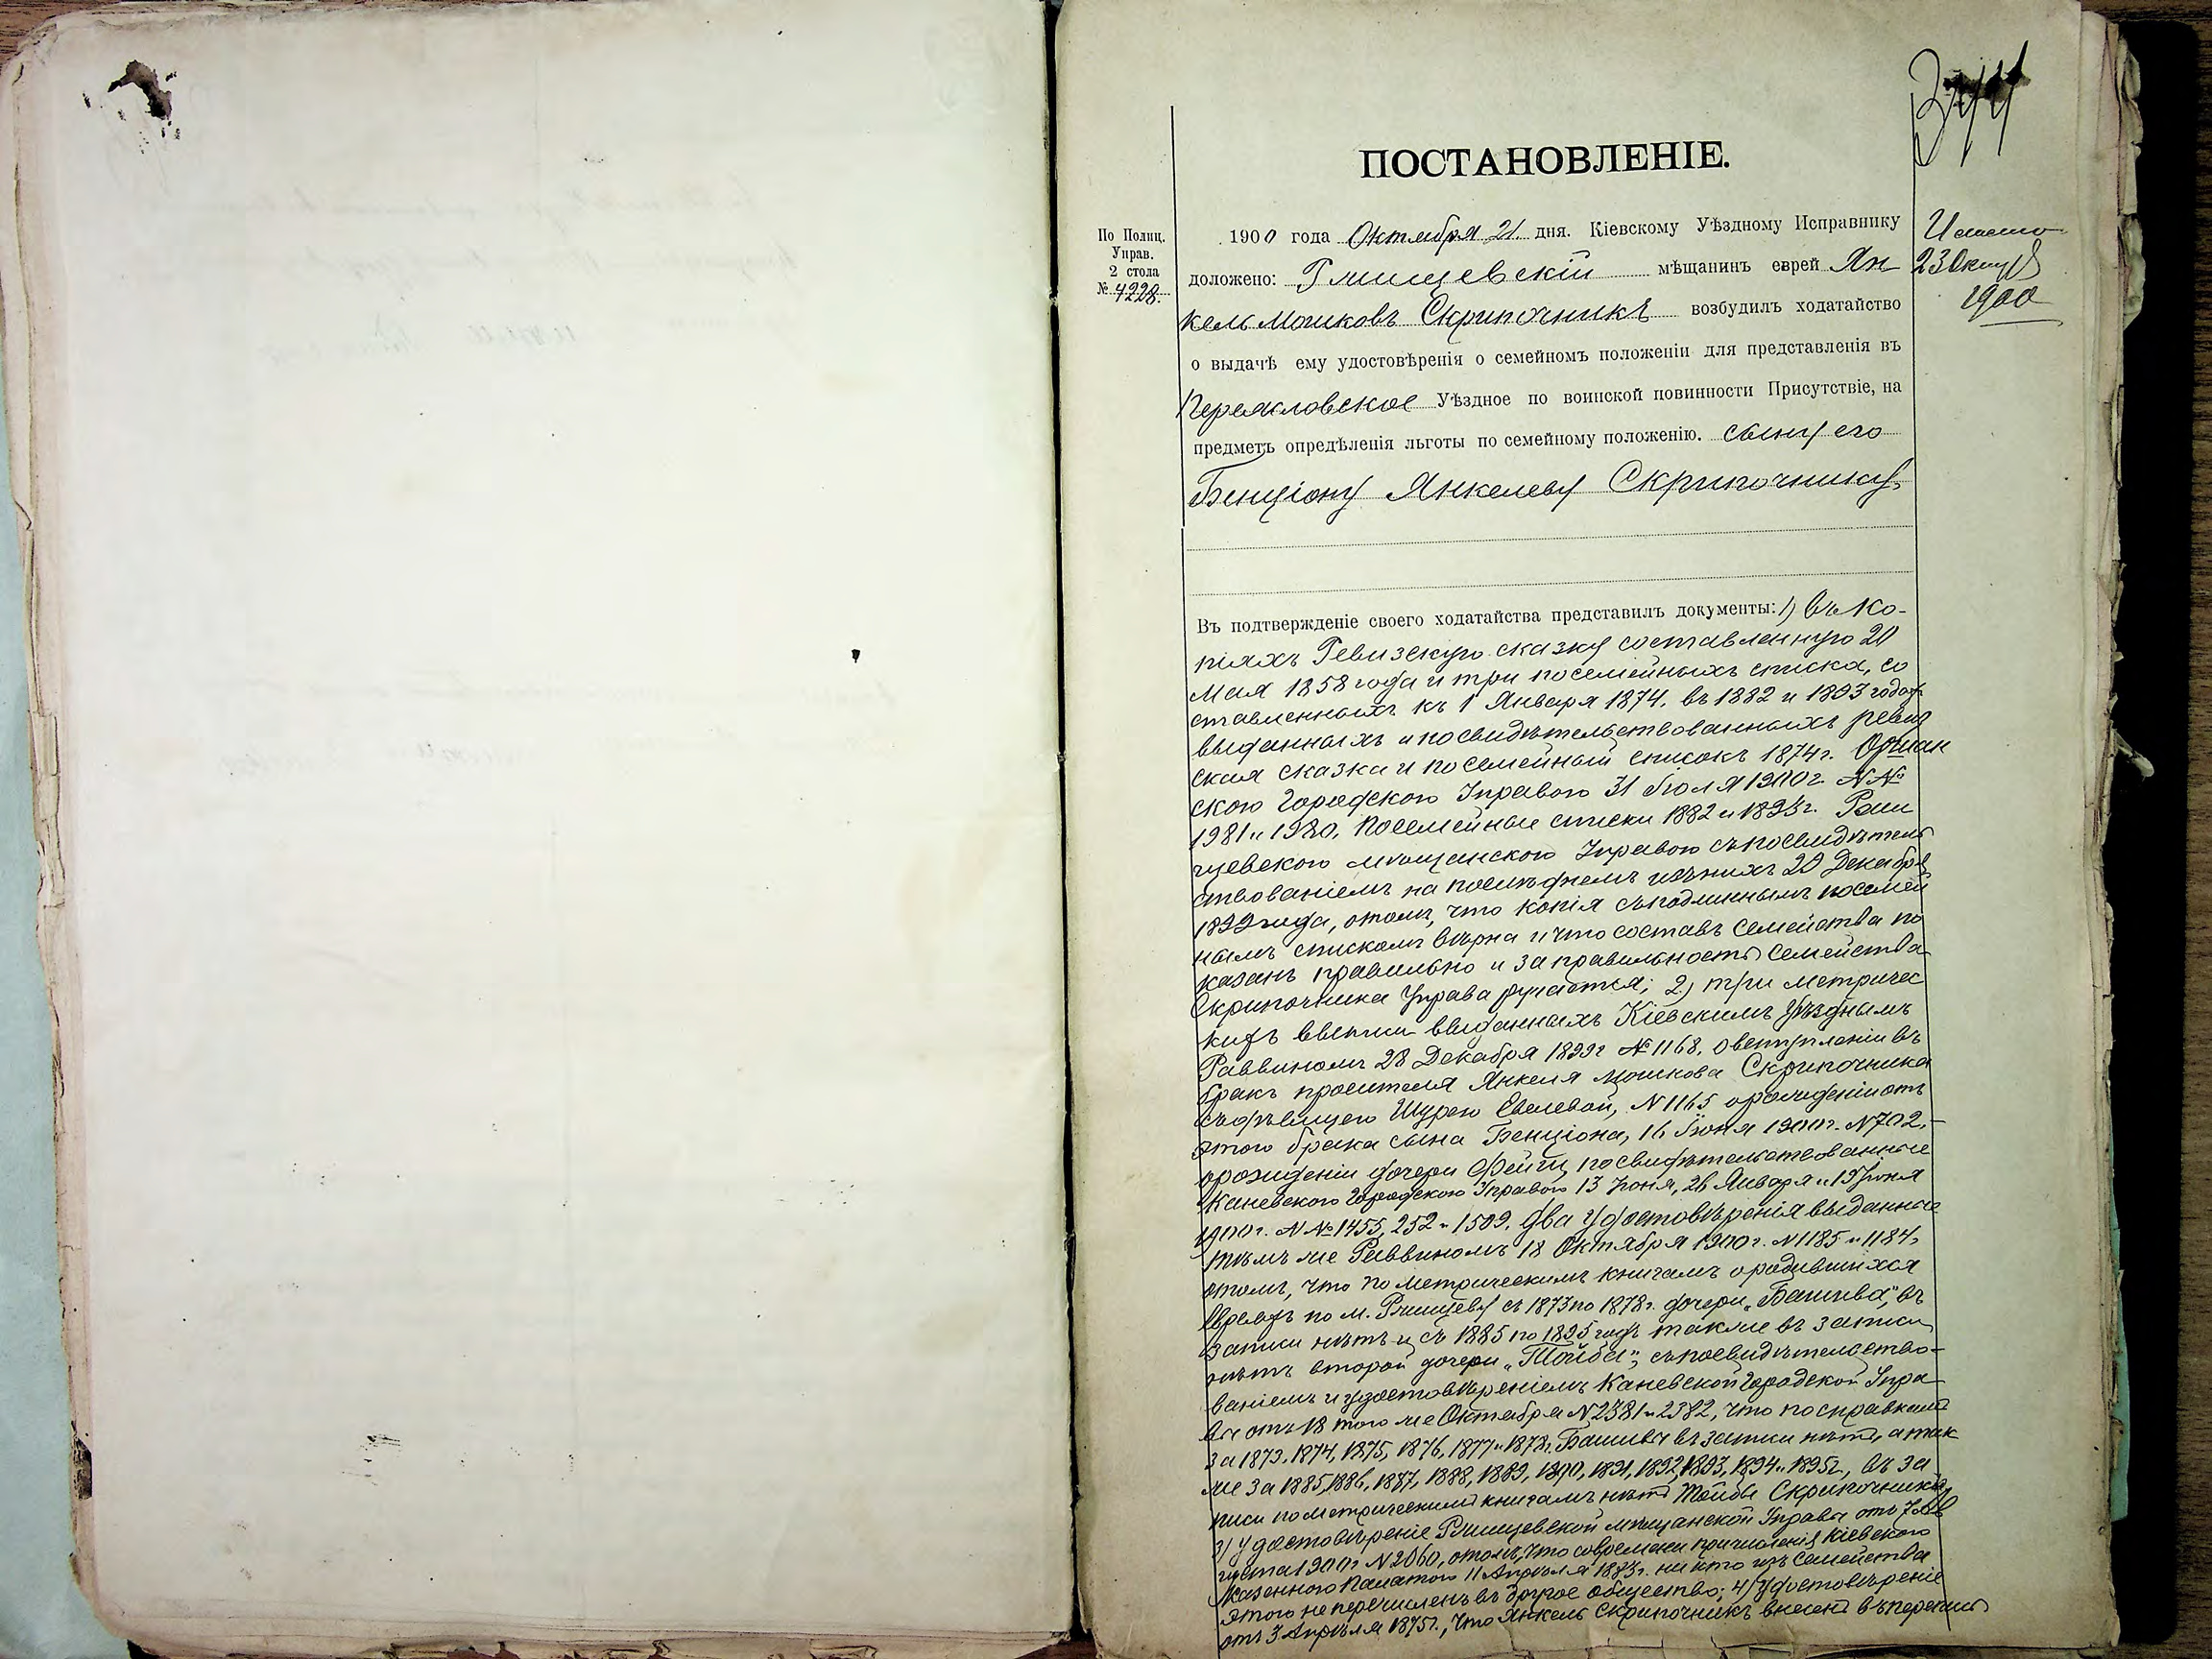 ПОСТАНОВЛЕНІЕ.
По Полиц.
Управ.
2 стола
№ 4228.
1900 года Октября 21 дня. Кіевскому Уѣздному Исправнику
доложено: Ржищевскій мѣщанинъ еврей Ян
кель Мошковъ Скрипочникъ возбудилъ ходатайство
о выдачѣ ему удостовѣренія о семейномъ положеніи для представленія въ
Переяловское Уѣздное по воинской повинности Присутствіе, на
предметъ опредѣленія льготы по семейному положенію. сыну его
Бенціону Янкелеву Скрипочнику.
23 Окт
1900
Въ подтвержденіе своего ходатайства представилъ документы: 1) въ ко-
піяхъ Ревизскую сказку составленную 20
Мая 1858 года и три посемейныхъ списка, со
ставленныхъ къ 1 Января 1874, въ 1882 и 1893 годах
выданныхъ и посвидѣтельствованныхъ ревиз
ская сказка и посемейный списокъ 1874 г.
скою Городскою Управою 31 Іюля 1900 г. №№
1981 и 1980, посемейные списки 1882 и 1893 г. Ржи
щевскою мѣщанскою Управою съ посвидѣтель
ствованіемъ на послѣднемъ изъ нихъ 20 Декабря
1899 года, отомъ, что копія съ подлиннымъ посемей
нымъ спискомъ вѣрна и что составъ семейства по
казанъ правильно и за правильность семейства
Скрипочника Управа ручается; 2) три метричес
кихъ выписи выданныхъ Кіевскимъ Уѣзднымъ
Раввиномъ 28 Декабря 1899 г. № 1168, о вступленіи въ
бракъ просителя Янкеля Мошкова Скрипочника
съ дѣвицею Шурею Евелевой, № 1165 о рожденіи отъ
этого брака сына Бенціона, 16 Іюня 1900 г. № 702,
о рожденіи дочери Фейги, посвидѣтельствованные
Каневскою Городскою Управою 13 Іюня, 26 Января и 19 Іюня
1900 г. №№ 1455, 252 и 1509. два удостовѣренія выданные
тѣмъ же Раввиномъ 18 Октября 1900 г. № 1185 и 1184,
отомъ, что по метрическимъ книгамъ о родившихся
Евреяхъ по м. Ржищеву съ 1873 по 1878 г. дочери „Башива“, въ
записи нѣтъ и съ 1885 по 1895 годъ также въ записи
нѣтъ второй дочери „Тойба“, съ посвидѣтельство-
ваніемъ и удостовѣреніемъ Каневской Городской Упра
вы отъ 18 того же Октября № 2381 и 2382, что по справкамъ
за 1873, 1874, 1875, 1876, 1877 и 1878 г. Башивы въ записи нѣтъ, а так
же за 1885, 1886, 1887, 1888, 1889, 1890, 1891, 1892, 1893, 1894 и 1895 г., въ за
писи по метрическимъ книгамъ нѣтъ Тойбы Скрипочника,
3) Удостовѣреніе Ржищевской мѣщанской Управы отъ 7 Ав
густа 1900 г. № 2060, отомъ, что со времени причисленія Кіевскою
Казенною Палатою 11 Апрѣля г. ни кто изъ семейства
этого не перечисленъ въ другое общество; 4) Удостовѣреніе
отъ 3 Апрѣля 1875 г., что Янкель Скрипочникъ внесенъ въ